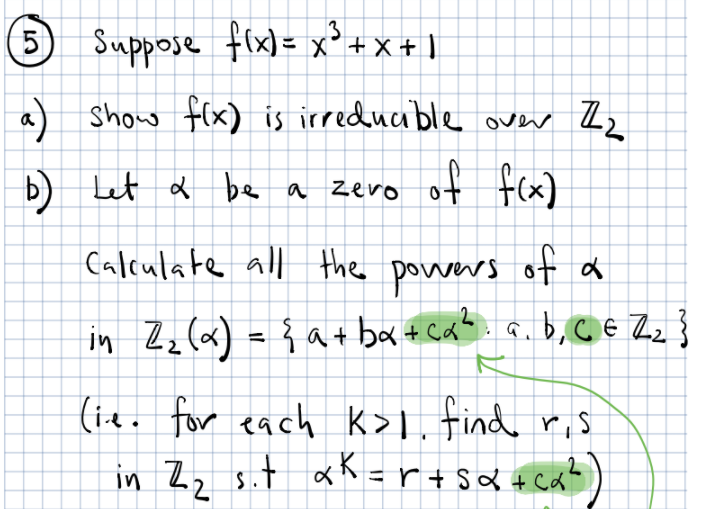 ⑤ Suppose f(x) = x³ + x + 1
a) Show f(x) is irreducible over ℤ₂
b) Let α be a zero of f(x)
Calculate all the powers of α
in ℤ₂(α) = { a + bα + cα² : a, b, c ∈ ℤ₂ }
(i.e. for each K>1, find r, s
in ℤ₂ s.t αᴷ = r + sα + cα²)